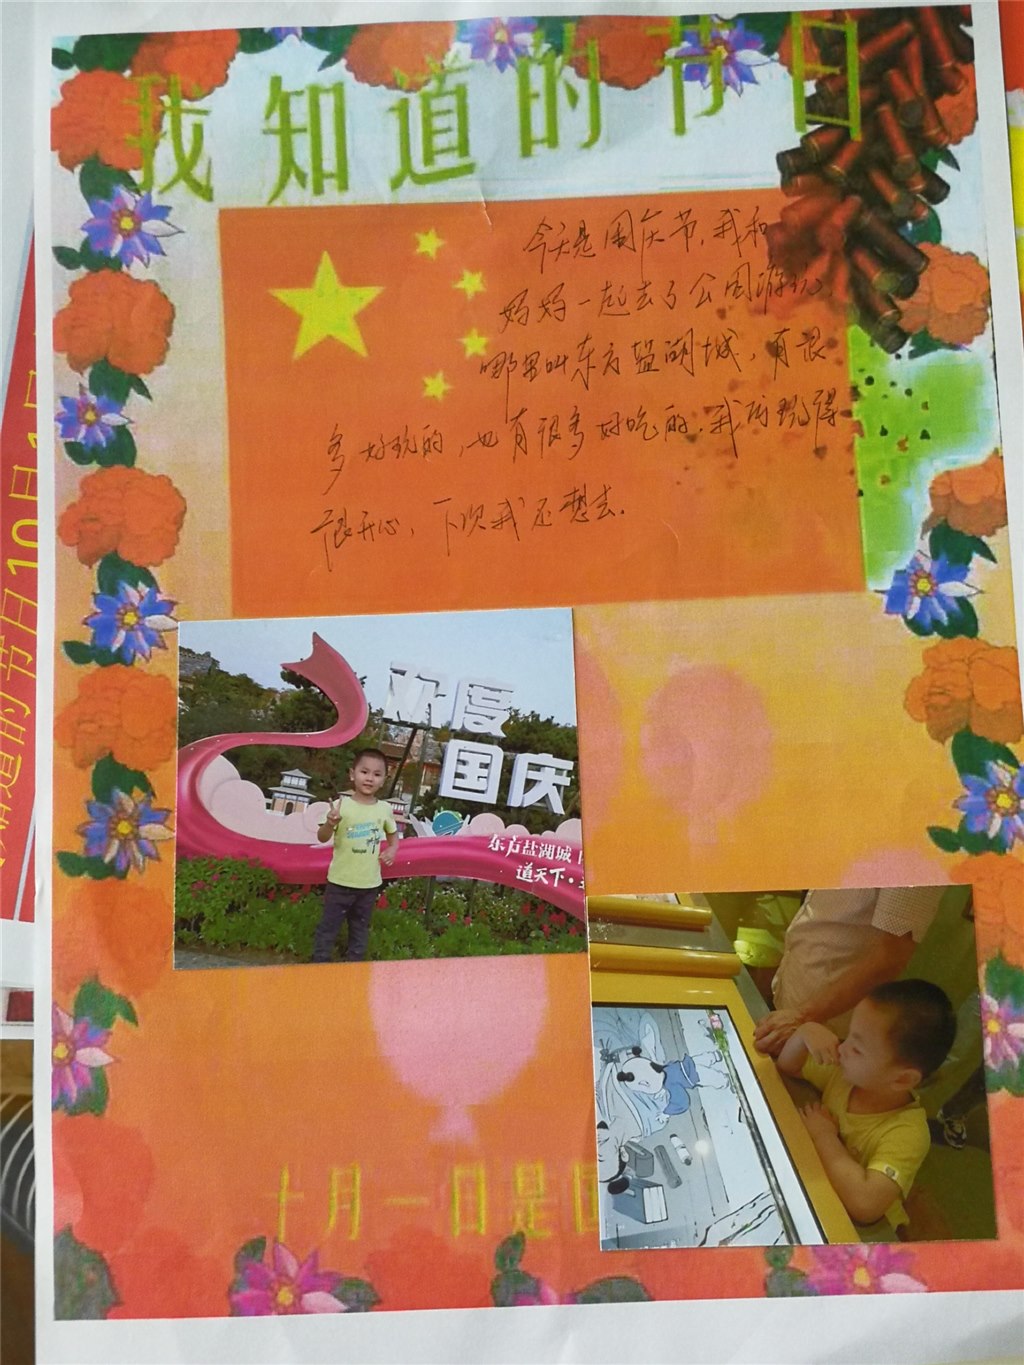 我知道的节日
今天是国庆节,我和
妈妈一起去了公园游玩,
哪里叫东方盐湖城,有很
多好玩的,也有很多好吃的,我玩得
很开心,下次我还想去.
欢度
国庆
东方盐湖城
道天下·
十月一日是
知道的节日10月1